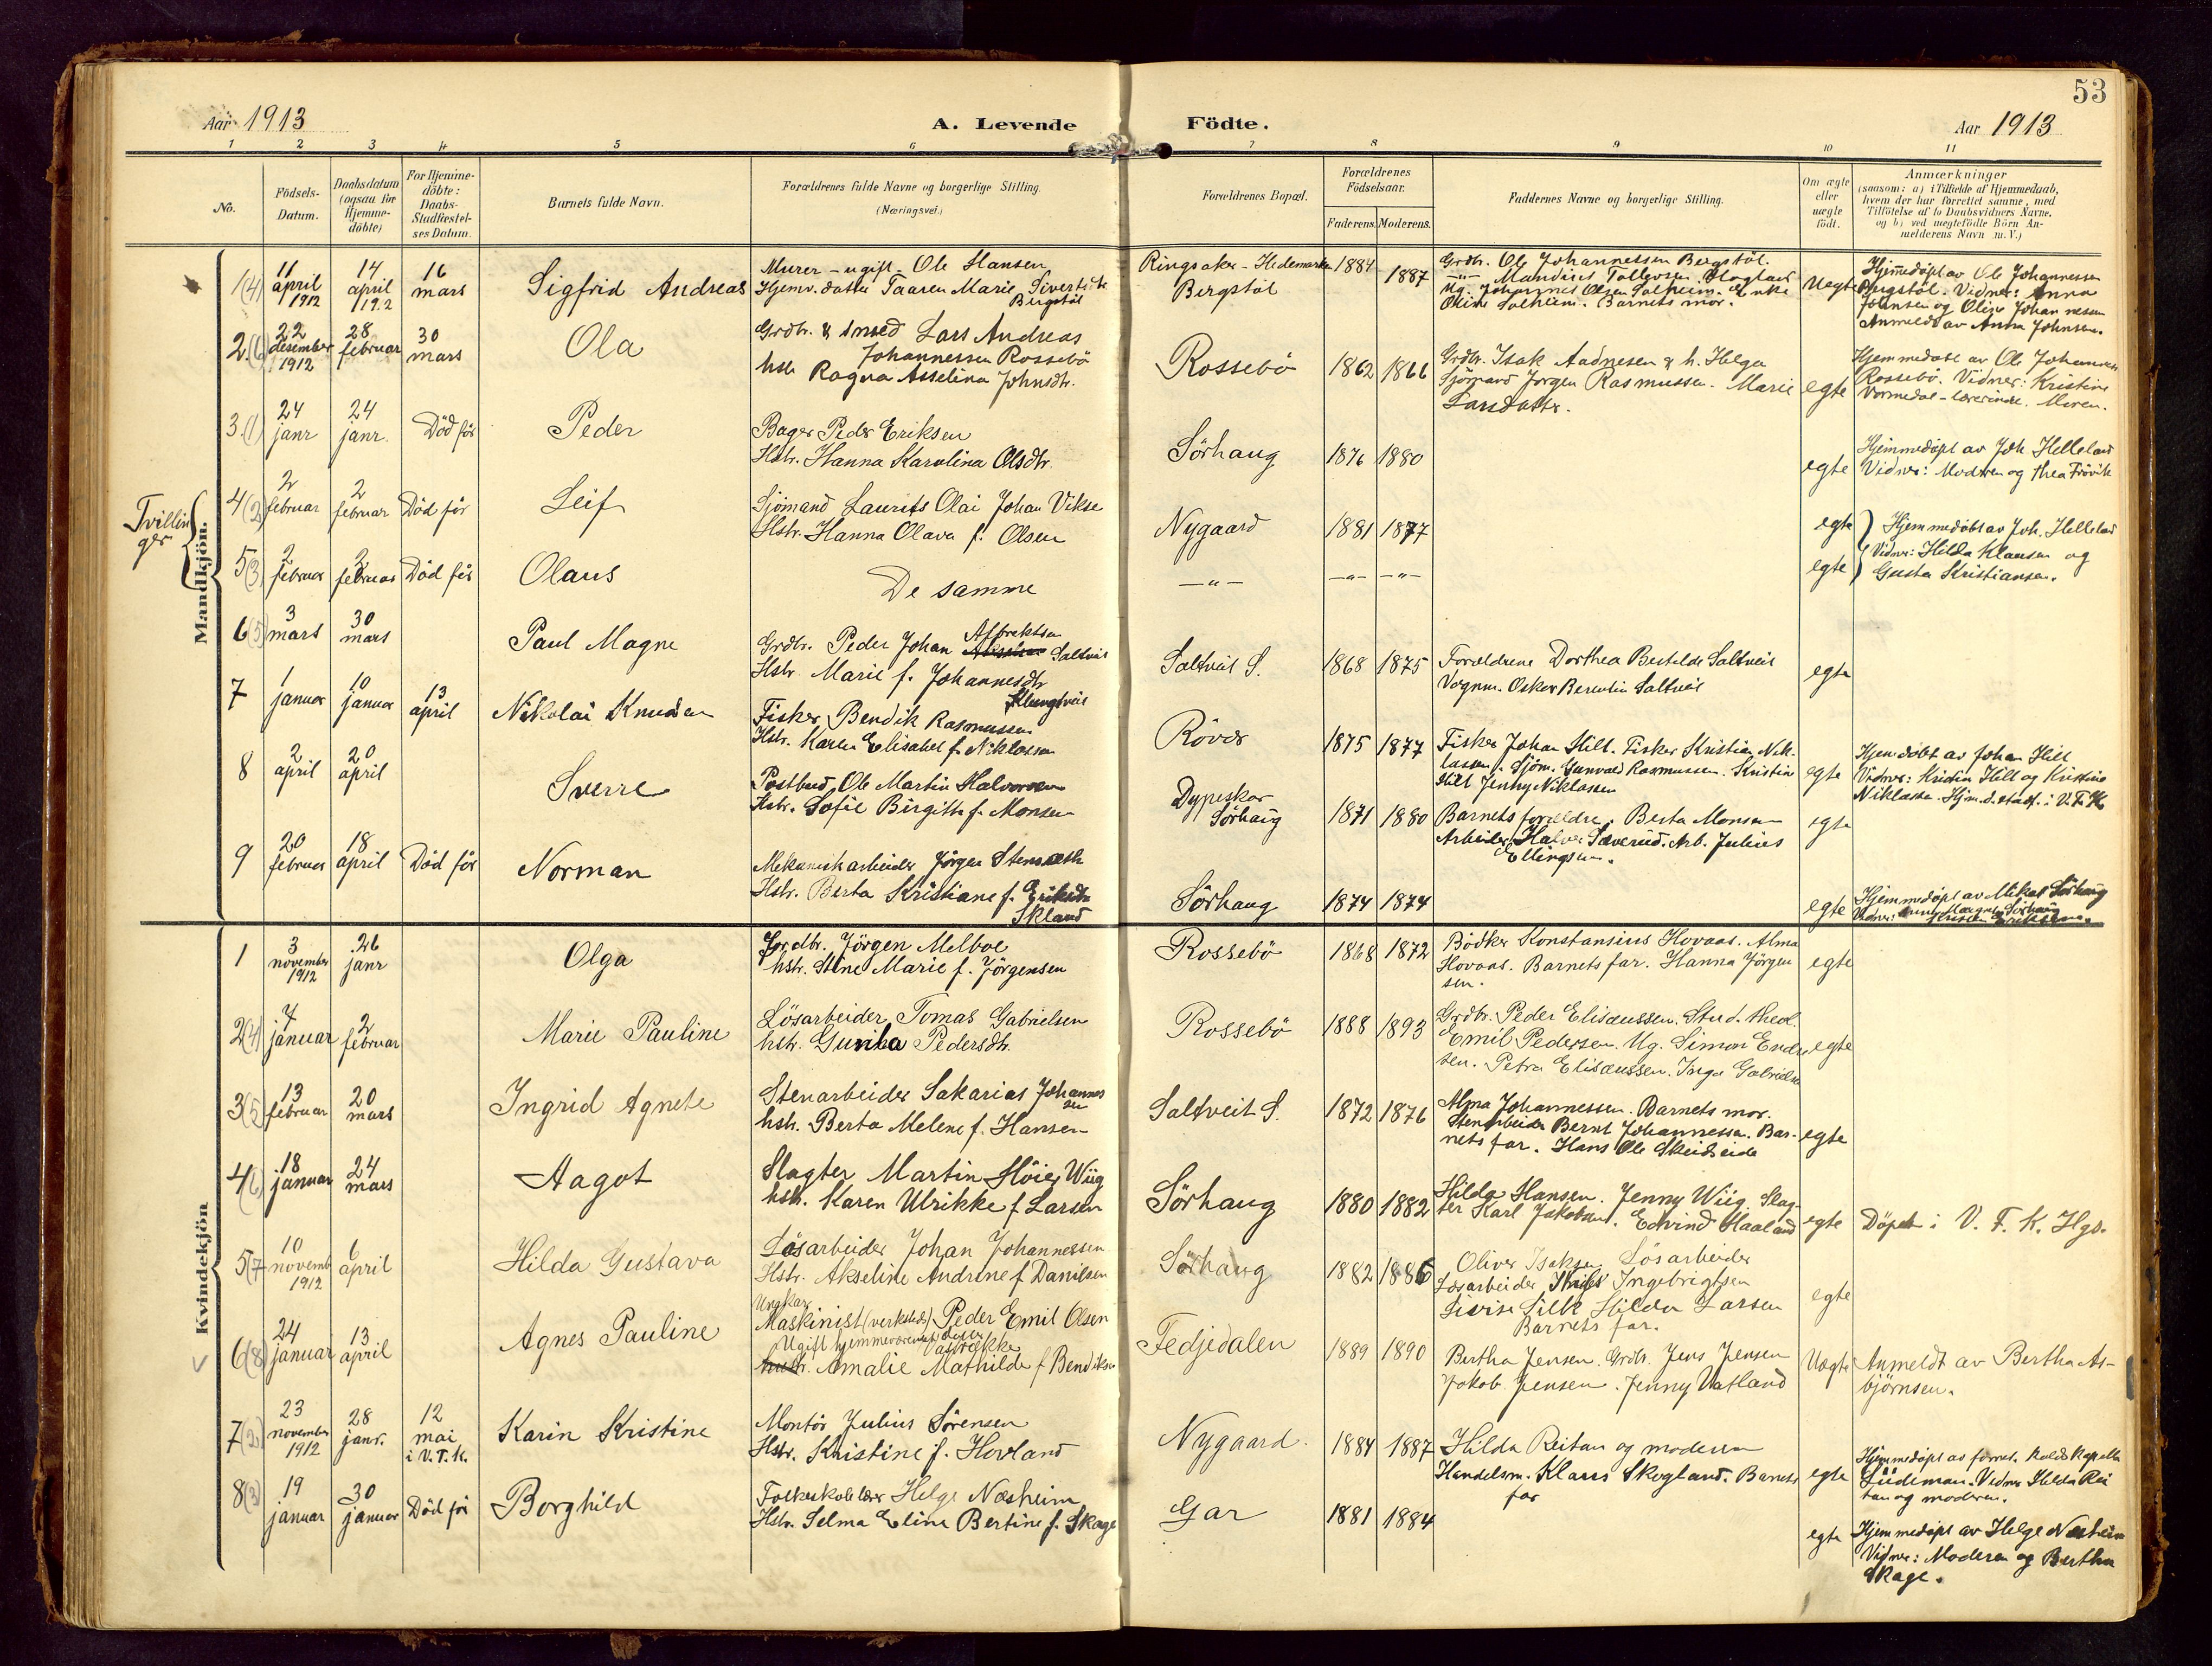 53
Aar 1913
A. Levende
Födte.
Aar 1913
1 2 3 4 5 6 7 8 9 10 11
No.
Födsels-
Datum.
Daabsdatum
(ogsaa for
Hjemme-
döbte)
For Hjemme-
döbte:
Daabs-
Stadfæstel-
ses Datum.
Barnets fulde Navn.
Forældrenes fulde Navne og borgerlige Stilling.
(Næringsvei.)
Forældrenes Bopæl.
Forældrenes
Födselsaar.
Faderens. Moderens.
Faddernes Navne og borgerlige Stilling.
Om ægte
eller
uægte
födt.
Anmærkninger
(saasom: a) i Tilfælde af Hjemmedaab,
hvem der har forrettet samme, med
Tilföielse af to Daabsvidners Navne,
og b) ved uægtefödte Börn An-
melderens Navn m. V.)
Mandkjön.
Tvillin
ger
1(4) 11 april 1912
14 april 1912
16 mars
Sigfrid Andreas
Murer - ugift - Ole Hansen
Hjemv. datter Taaren Marie Sivertsdtr
Bergstöl
Ringsaker - Hedemarken
Bergstöl
1884 1887
Grdbr. Ole Johannessen Bergstöl.
Ug. Johannes Olsen Solheim. Enke
Oline Solheim. Barnets mor.
Uegte
Hjemmedöpt av Ole Johannessen
Bergstöl. Vidner: Anna
Johnsen og Oline Johannessen
Anmeldt av Anna Johnsen.
2.(6) 22 desember 1912
28 februar
30 mars
Ola
Grdbr. & smed Lars Andreas
Johannessen Rossebö
hstr Ragna Asselina Johnsdtr.
Rossebö
1862 1866
Grdbr. Isak Aadnesen & h. Helga
Sjömand Jorgen Rasmussen. Marie
Larsdatter.
egte
Hjemmedöbt av Ole Johannessen
Rossebö. Vidner: Kristine
Vormedal - lærerinde. Moren.
3.(1) 24 janr
24 janr.
Död för
Peder
Bager Peder Eriksen
Hstr. Hanna Karolina Olsdtr.
Sörhaug
1876 1880
egte
Hjemmedöpt av Joh. Helleland
Vidner: Moderen og Thea Frövik
4(2) 2 februar
2 februar
Död för
Leif
Sjömand Laurits Olai Johan Vikse
Hstr. Hanna Olava f. Olsen
Nygaard
1881 1877
egte
Hjemmedöbt av Joh. Helleland
Vidner: Hilda Klausen og
Gusta Kristiansen.
5(3) 2 februar
2 februar
Död för
Olaus
De samme
— " —
— " — — " —
egte
6(5) 3 mars
30 mars
Paul Magne
Grdbr. Peder Johan Albrektsen Saltveit
Hstr. Marie f. Johannesdtr
Klungtveit
Saltveit S.
1868 1875
Forældrene Dorthea Bestilde Saltveit
Vognm. Oskar Berentin Saltveit
egte
7 1 januar
10 januar
13 april
Nikolai Knudsen
Fisker Bendik Rasmussen
Hstr. Karen Elisabet f. Niklassen
Rövær
1875 1877
Fisker Johan Hill. Fisker Kristian Nik-
lassen. Sjöm. Gunvald Rasmussen. Kristine
Hill Jenny Niklassen
egte
Hjemdöbt av Johan Hill
Vidner: Kristin Hill og Kristine
Niklassen. Hjm. d. stadf. i V. F. K
8 2 april
20 april
Sverre
Postbud Ole Martin Halvorsen
Hstr. Sofie Birgitte f. Monsen
Dypeskar
Sörhaug
1871 1880
Barnets forældre. Berta Monsen
Arbeider Halvor Sæverud. Arb. Julius
Ellingsen.
egte
9 20 februar
18 april
Död för
Norman
Mekanisk arbeider Jörgen Stensæth
Hstr. Berta Kristiane f. Eriksdtr
Skland
Sörhaug
1874 1874
egte
Hjemmedöpt av Mikal Sörhaug
Kvindekjön
1 3 november 1912
26 janr
Olga
Grdbr. Jörgen Melboe
hstr. Stine Marie f. Jörgensen
Rossebö
1868 1872
Bödker Konstansius Hovaas. Alma
Hovaas. Barnets far. Hanna Jörgen
sen.
egte
2(4) 7 januar
2 februar
Marie Pauline
Lösarbeider Tomas Gabrielsen
hstr. Gunila Pedersdtr.
Rossebö
1888 1893
Grdbr. Peder Elisæussen. Stud. theol.
Emil Pedersen. Ug. Simon Endre
sen. Petra Elisæussen. Inga Gabrielsen
egte
3(5) 13 februar
20 mars
Ingrid Agnete
Stenarbeider Sakarias Johannes
sen
hstr. Berta Melene f. Hansen
Saltveit S.
1872 1876
Alma Johannessen. Barnets mor.
Stenarbeider Bernt Johannessen. Bar-
nets far. Hans Ole Skeidseide
egte
4(6) 18 januar
24 mars
Aagot
Slagter Martin Höier Wiig
hstr. Karen Ulrikke f. Larsen
Sörhaug
1880 1882
Hilda Hansen. Jenny Wiig. Slag-
ter Karl Jakobsen. Edvind Haaland
egte
Döpt i V. F. K. Hgs.
5(7) 10 novemb 1912
6 april
Hilda Gustava
Lösarbeider Johan Johannessen
Hstr. Akseline Andrine f Danielsen
Sörhaug
1882 1886
Oliver Isaksen Lösarbeider
Lösarbeider Nils Ingebrigtsen
Sivine Silk Hilda Larsen
Barnets far.
egte
6(8) 24 januar
13 april
Agnes Pauline
Ungkar
Maskinist (verksted) Peder Emil Olsen
Ugift hjemmeværende datter
hustr. Amalie Mathilde f Bendiksen
Fedjedalen
1889 1890
Bertha Jensen. Grdb. Jens Jensen
Jakob Jensen. Jenny Vatland
Uegte
Anmeldt av Bertha As-
björnsen.
7(2) 23 november 1912
28 janr.
12 mai i V. F. K.
Karin Kristine
Montör Julius Sörensen
Hstr. Kristine f. Hovland
Nygaard.
1884 1887
Hilda Reitan og moderen
Handelsm. Klaus Skogland. Barnets
far
egte
Hjemmedöpt av forret. Kaldskapellan
Lüdeman. Vidner Hilda Rei
tan og moderen.
8(3) 19 januar
30 januar
Död för
Borghild
Folkeskolelærer Helge Næsheim
Hstr. Selma Eline Bertine f. Skage
Gar
1881 1884
egte
Hjemmedöpt av Helge Næsheim
Vidner: Moderen og Bertha
Skage.